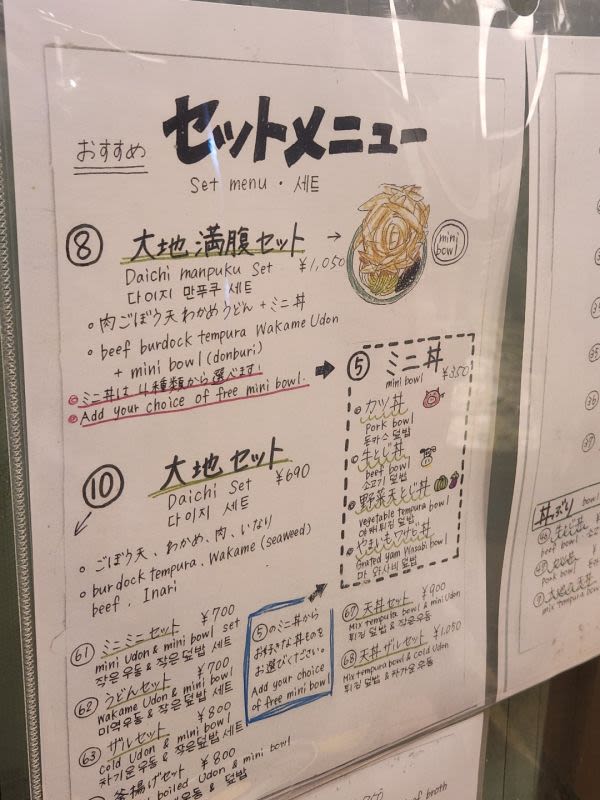 おすすめ
セットメニュー
Set menu・세트
⑧ 大地満腹セット →
Daichi manpuku Set ¥1,050
다이지 만푸쿠 세트
mini bowl
• 肉ごぼう天わかめうどん+ミニ丼
• beef burdock tempura Wakame Udon
+ mini bowl (donburi)
◎ミニ丼は4種類から選べます!
◎Add your choice of free mini bowl.
⑤ ミニ丼
mini bowl ¥350
• カツ丼
Pork bowl
돈카스 덮밥
• 牛とじ丼
beef bowl
소고기 덮밥
• 野菜天とじ丼
vegetable tempura bowl
야채튀김 덮밥
• やまいもワサビ丼
Grated yam Wasabi bowl
마 와사비 덮밥
⑩ 大地セット
Daichi Set ¥690
다이지 세트
• ごぼう天、わかめ、肉、いなり
• burdock tempura, Wakame (seaweed)
beef, Inari
61 ミニミニセット ¥700
mini Udon & mini bowl set
작은우동 & 작은덮밥 세트
62 うどんセット ¥700
Wakame Udon & mini bowl
미역우동 & 작은덮밥 세트
63 ザルセット ¥800
cold Udon & mini bowl
차가운우동 & 작은덮밥 세트
釜揚げセット ¥800
boiled Udon & mini bowl
⑤のミニ丼から
お好きな丼ものを
お選びください。
Add your choice
of free mini bowl
67 天丼セット ¥900
Mix tempura bowl & mini Udon
튀김 덮밥 & 작은우동
68 天丼ザルセット ¥1,050
Mix tempura bowl & cold Udon
튀김 덮밥 & 차가운우동
丼ぶり bowl
牛とじ丼
beef bowl
Pork bowl
大地の天丼
mix tempura bowl
of broth